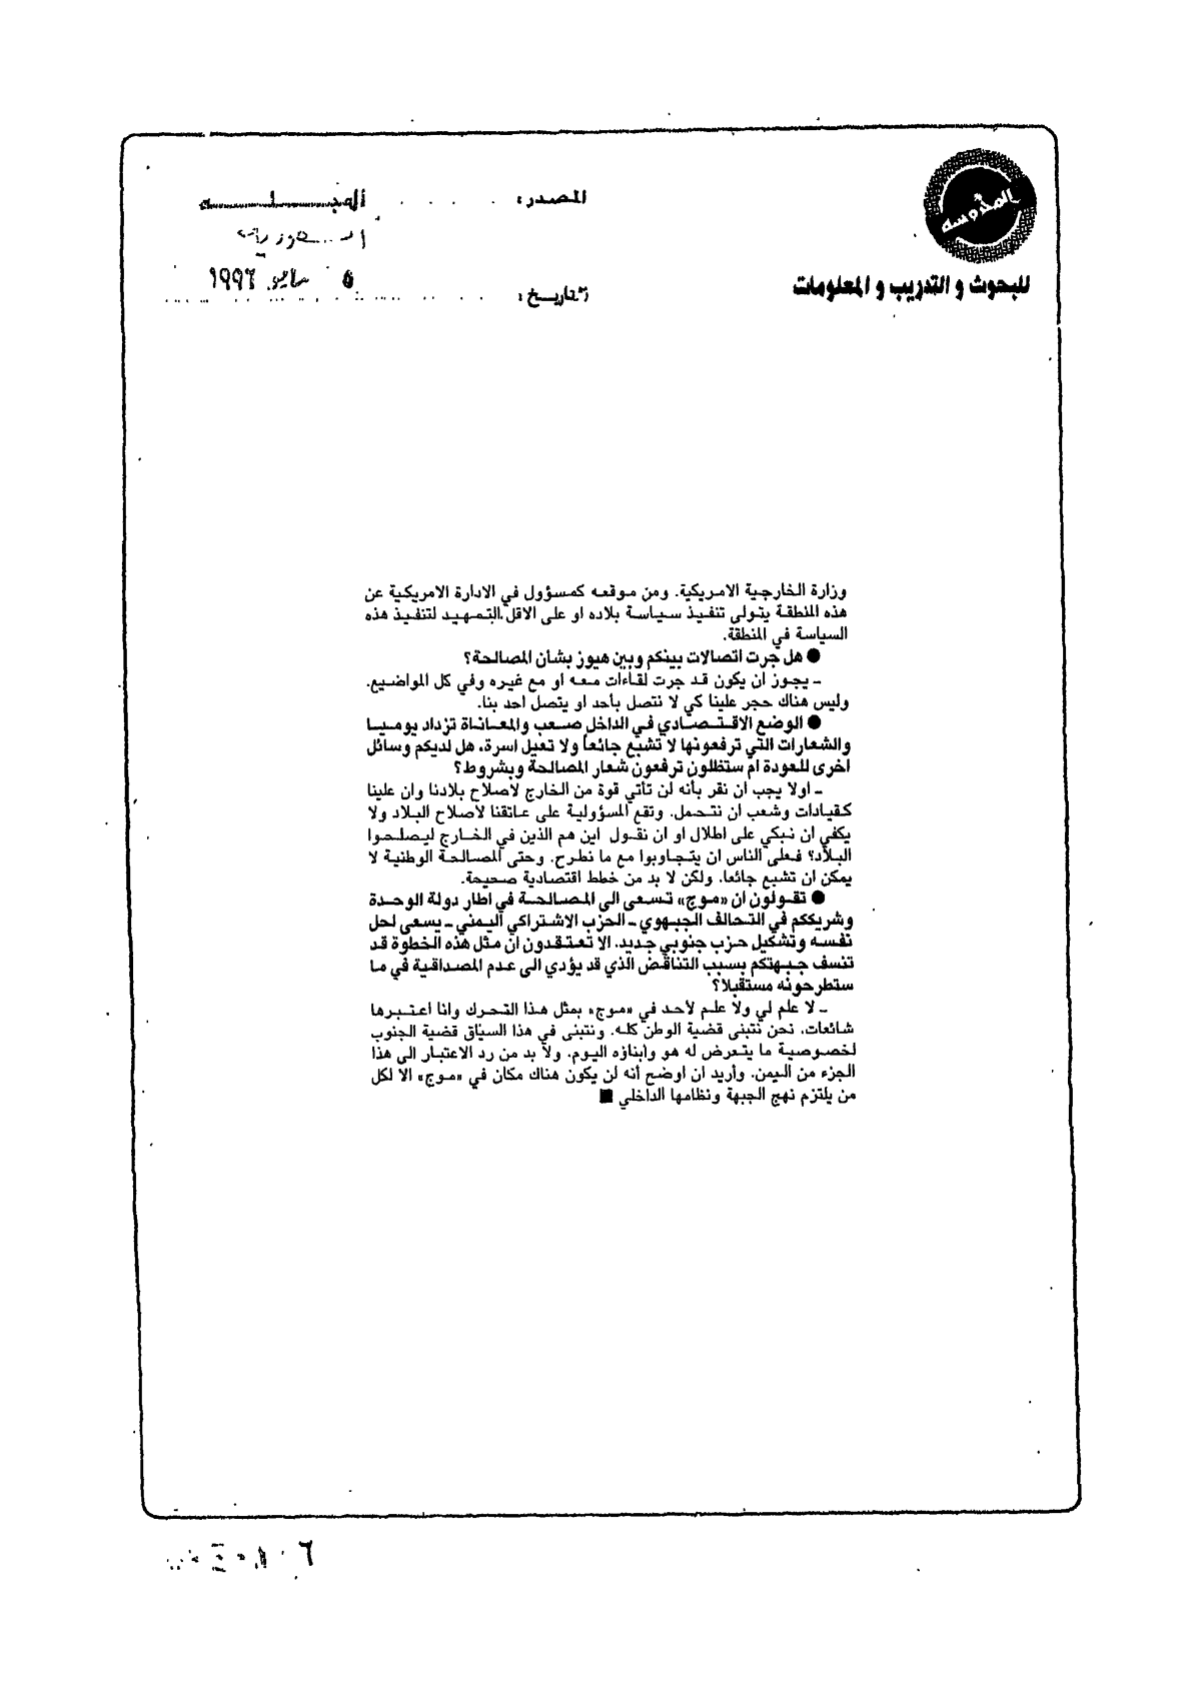 المحروسه
للبحوث و التدريب و المعلومات
المصدر: المجلـــه
السعوديه
التاريخ: ٥ مايو ١٩٩٦
وزارة الخارجية الامريكية. ومن موقعه كمسؤول في الادارة الامريكية عن
هذه المنطقة يتولى تنفيذ سياسة بلاده او على الاقل التمهيد لتنفيذ هذه
السياسة في المنطقة.
● هل جرت اتصالات بينكم وبين هيوز بشان المصالحة؟
ـ يجوز ان يكون قد جرت لقاءات معه او مع غيره وفي كل المواضيع.
وليس هناك حجر علينا كي لا نتصل بأحد او يتصل احد بنا.
● الوضع الاقتصادي في الداخل صعب والمعاناة تزداد يوميا
والشعارات التي ترفعونها لا تشبع جائعا ولا تعيل اسرة، هل لديكم وسائل
اخرى للعودة ام ستظلون ترفعون شعار المصالحة وبشروط؟
ـ اولا يجب ان نقر بأنه لن تأتي قوة من الخارج لاصلاح بلادنا وان علينا
كقيادات وشعب ان نتحمل. وتقع المسؤولية على عاتقنا لاصلاح البلاد ولا
يكفي ان نبكي على اطلال او ان نقول اين هم الذين في الخارج ليصلحوا
البلاد؟ فعلى الناس ان يتجاوبوا مع ما نطرح. وحتى المصالحة الوطنية لا
يمكن ان تشبع جائعا. ولكن لا بد من خطط اقتصادية صحيحة.
● تقولون ان «موج» تسعى الى المصالحة في اطار دولة الوحدة
وشريككم في التحالف الجبهوي ـ الحزب الاشتراكي اليمني ـ يسعى لحل
نفسه وتشكيل حزب جنوبي جديد. الا تعتقدون ان مثل هذه الخطوة قد
تنسف جبهتكم بسبب التناقض الذي قد يؤدي الى عدم المصداقية في ما
ستطرحونه مستقبلا؟
ـ لا علم لي ولا علم لأحد في «موج» بمثل هذا التحرك وانا اعتبرها
شائعات. نحن نتبنى قضية الوطن كله. ونتبنى في هذا السياق قضية الجنوب
لخصوصية ما يتعرض له هو وأبناؤه اليوم. ولا بد من رد الاعتبار الى هذا
الجزء من اليمن. وأريد ان اوضح أنه لن يكون هناك مكان في «موج» الا لكل
من يلتزم نهج الجبهة ونظامها الداخلي ■